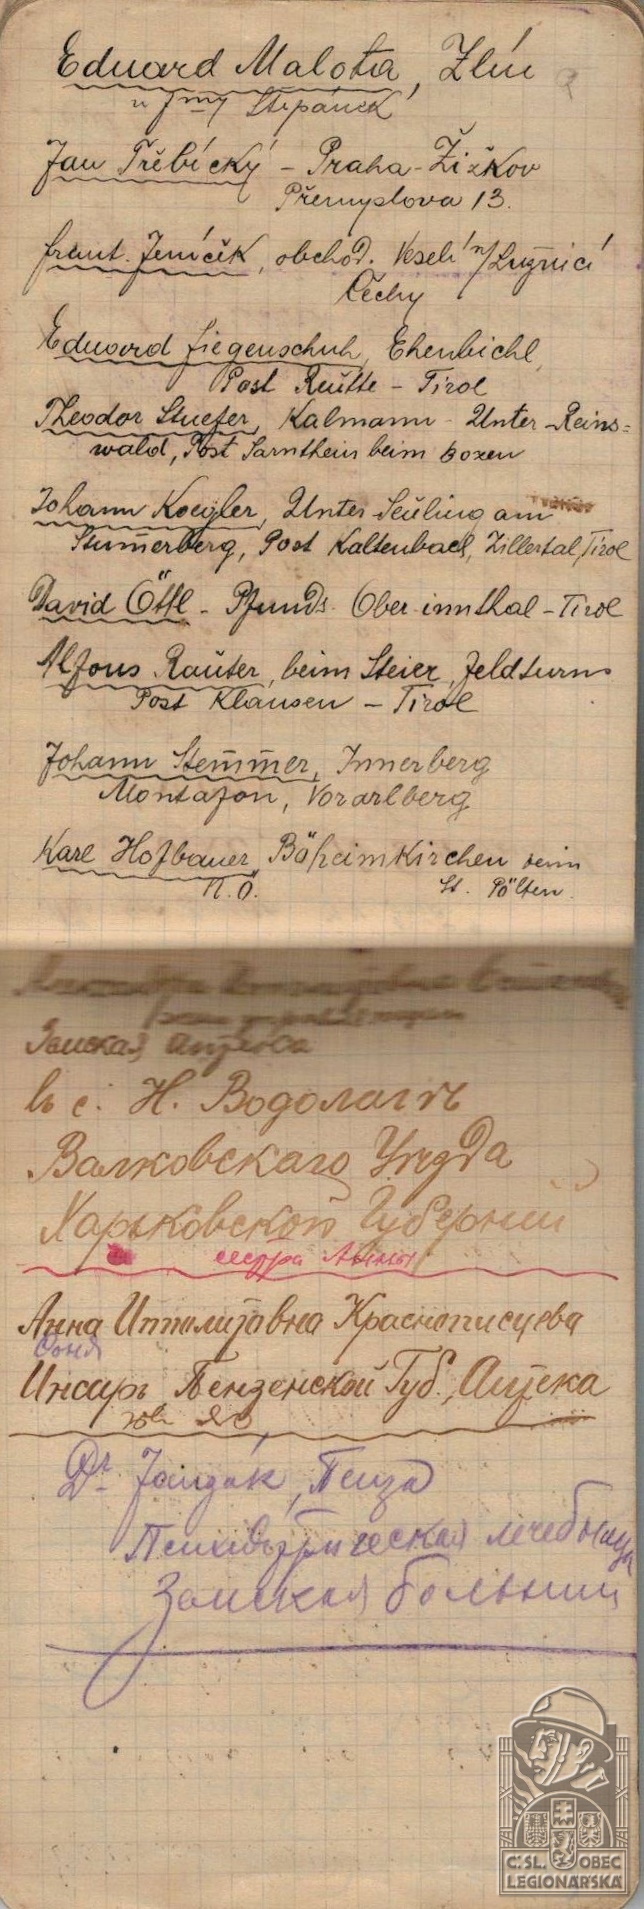 Eduard Malota, Zlín
u fmy Štěpánek
Jan Třebícký - Praha-Žižkov
Přemyslova 13.
frant. Jeníček, obchod. Veselí n/Lužnicí
Čechy
Eduard fiegenschuh, Ehenbichl,
Post Reutte - Tirol
Theodor Stuefer, Kalmann - Unter-Reins=
wald, Post Sarnthein beim Bozen
Johann Koegler, Unter am
Stummerberg, Post Kaltenbach, Zillertal, Tirol
David Öttl - Pfunds Ober-innthal - Tirol
Alfons Rauter, beim Steier, Feldturns
Post Klausen - Tirol
Johann Stemmer, Innerberg
Montafon, Vorarlberg
Karl Hofbauer, Böheimkirchen beim
N.Ö. St. Pölten.
Земская Аптека
въ с. Н. Водолагѣ
Валковскаго Уѣзда
Харьковской Губерніи
сестра
Анна Ипполитовна Краснописцева
Инсаръ Пензенской Губ., Аптека
Dr. Пенза
Психіатрическая лечебница
Земская больниц
Č.SL. OBEC
LEGIONÁŘSKÁ